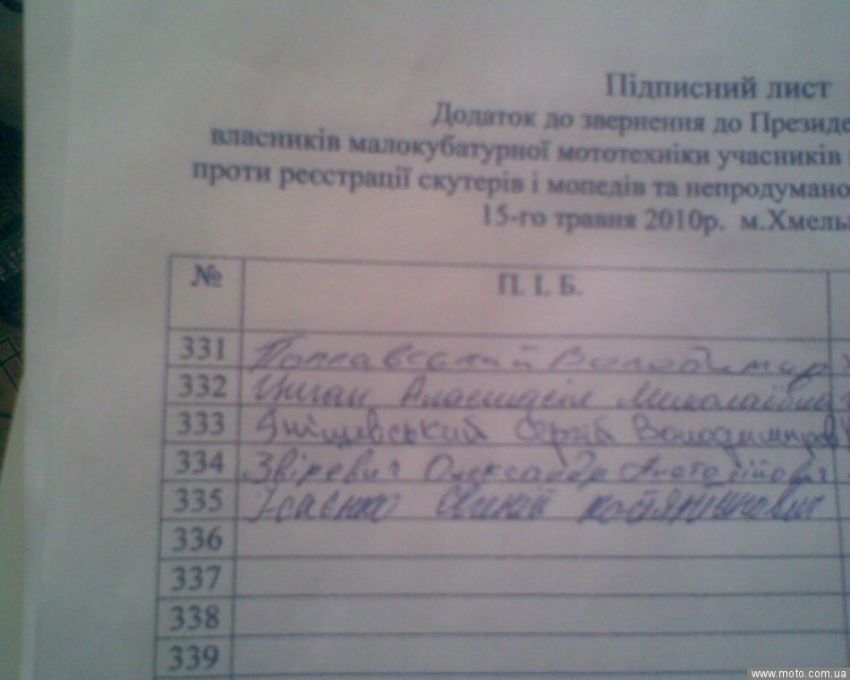 Підписний лист
Додаток до звернення до Президе
власників малокубатурної мототехніки учасників
проти реєстрації скутерів і мопедів та непродумано
15-го травня 2010р. м.Хмель
№ П. І. Б.
331 Поплавський Володимир
332 Циган Анастасія Миколаївна
333 Яніщевський Сергій Володимиров
334 Звіревич Олександр Анатолійович
335 Ісаєнко
336
337
338
339
www.moto.com.ua